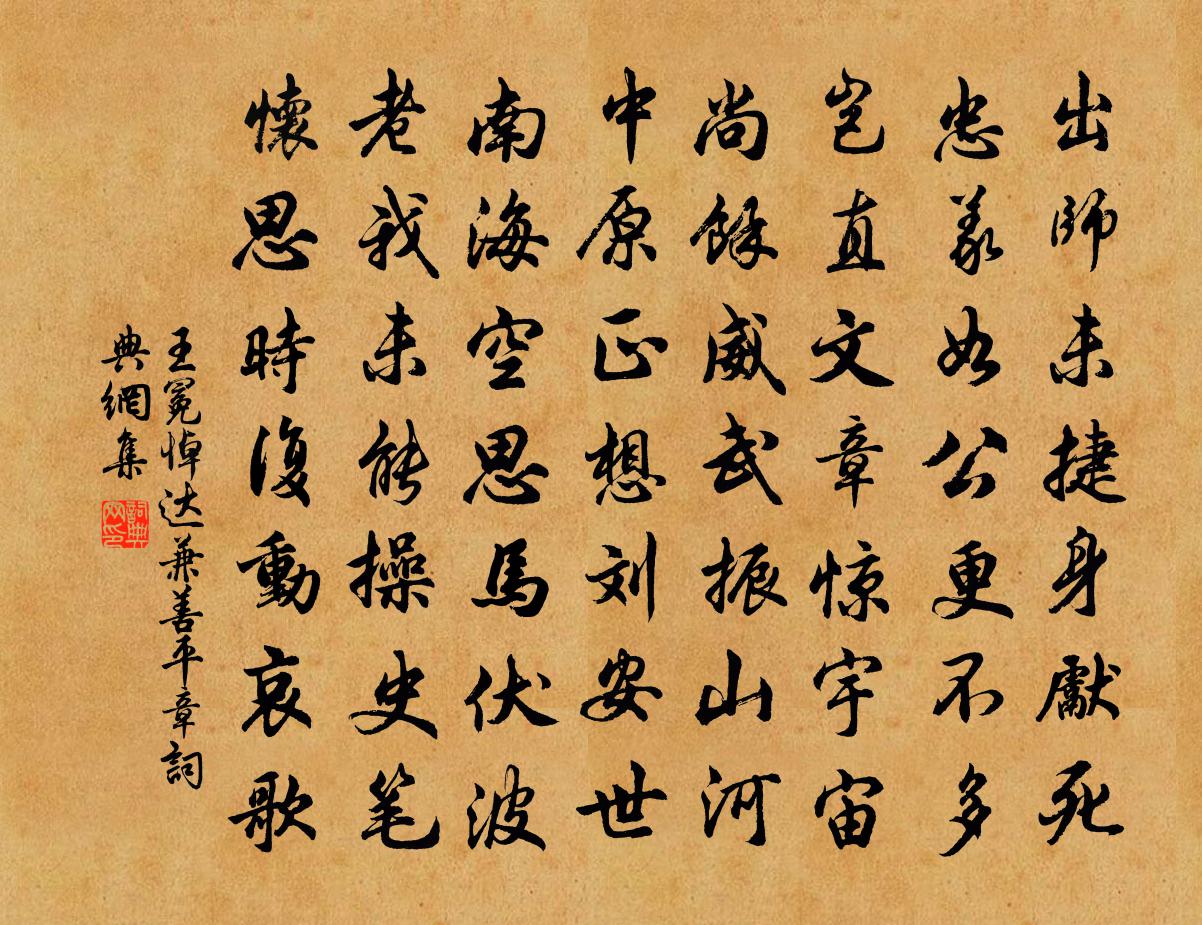 出師未捷身獻死
忠義如公更不多
豈直文章惊宇宙
尚餘威武振山河
中原正想刘安世
南海空思馬伏波
老我未能操史笔
懷思時復動哀歌
王冕悼达兼善平章詞
典網集
詞典
网印